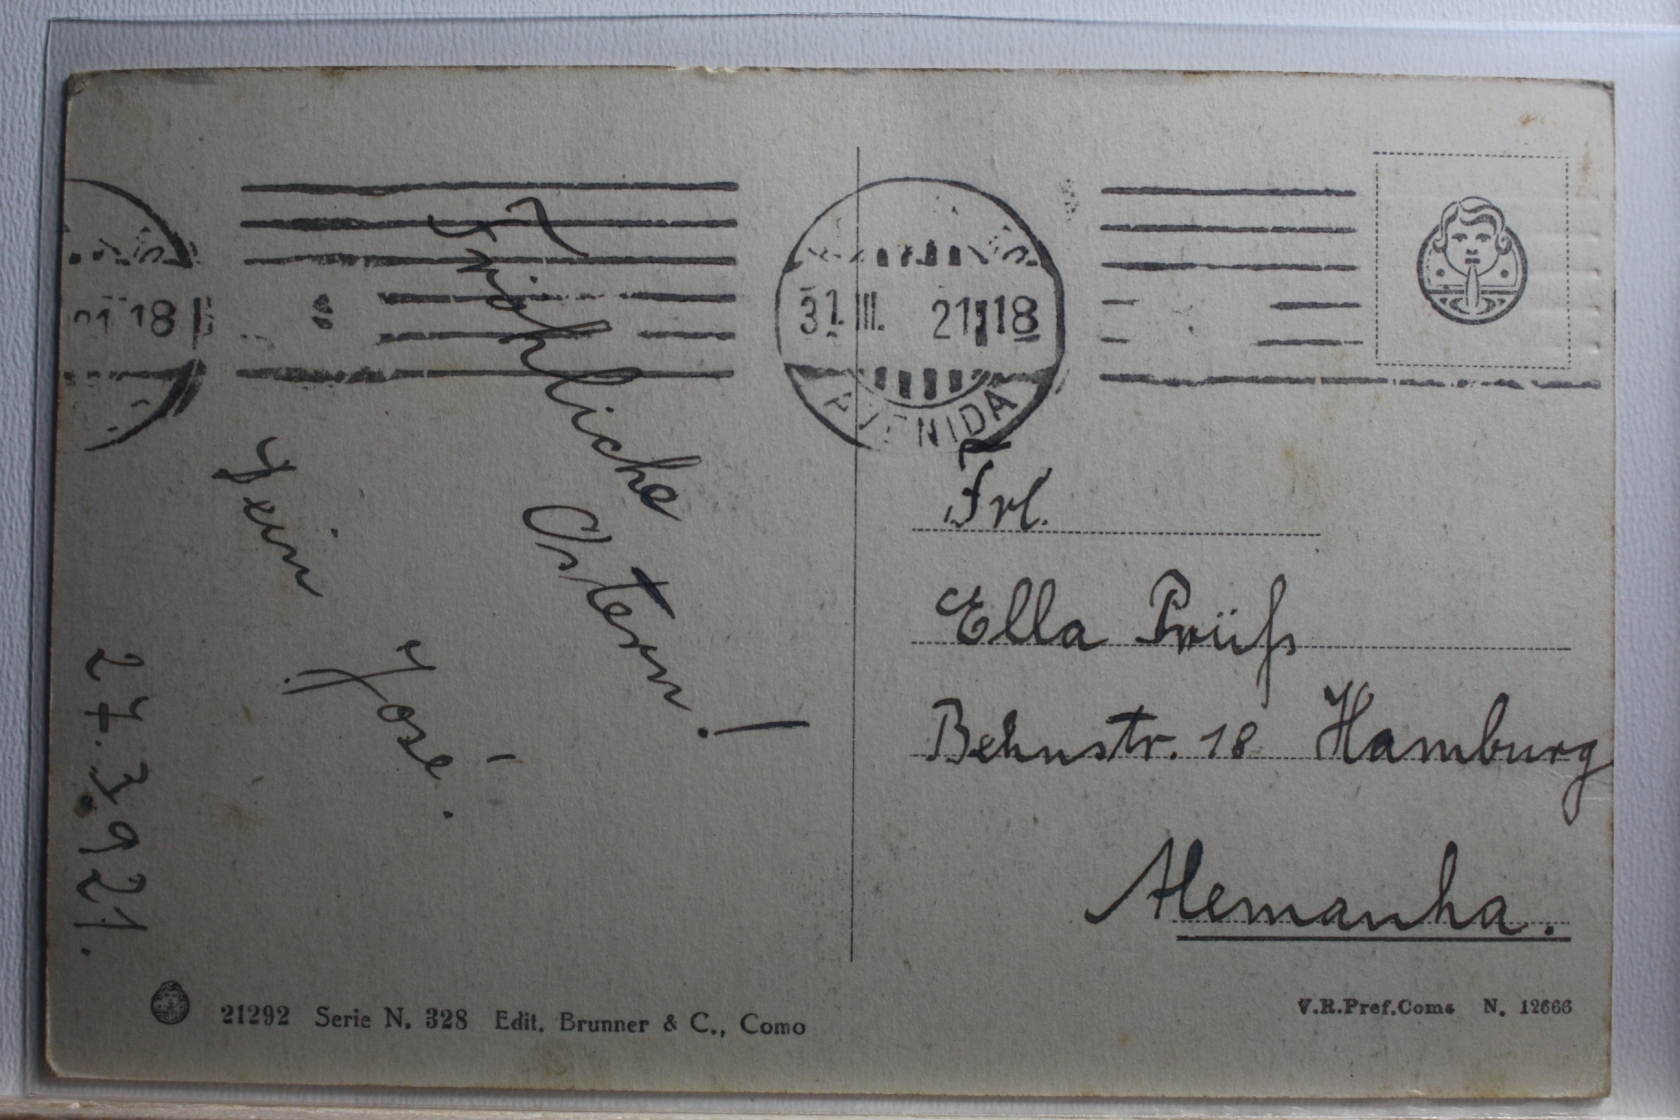 Fröhliche
Ostern!
Dein
José.
27.3.921.
31 III. 21 18
AVENIDA
21 18
Frl.
Ella Prüß
Behnstr. 18 Hamburg
Alemanha.
21292 Serie N. 328 Edit. Brunner & C., Como
V.R.Pref.Como N. 12666